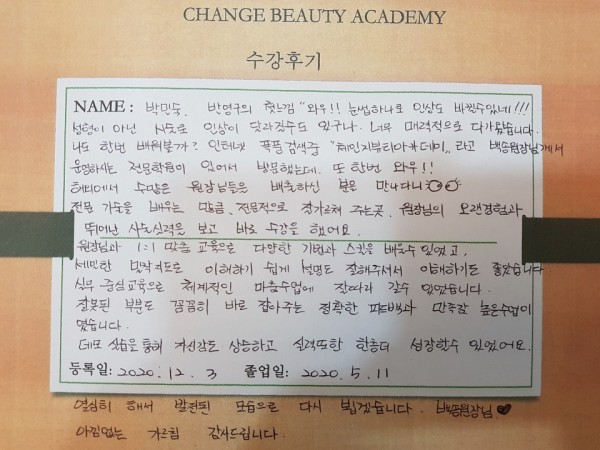 CHANGE BEAUTY ACADEMY
수강후기
NAME : 박민숙. 반영구의 첫느낌 "와우!! 눈썹하나로 인상도 바뀐수있네!!!
성형이 아닌 시도로 인상이 달라질수도 있구나. 너무 매력적으로 다가왔습니다.
나도 한번 배워볼까? 인터넷 폭풍검색중 "체인지뷰티아카데미"라고 백승원장님께서
운영하시는 전문학원이 있어서 방문했는데. 또한번 와우!!
해외에서 수많은 원장님들은 배출하신 분은 만나다니
전문 기술을 배우는 만큼, 전문적으로 잘가르쳐 주는곳. 원장님의 오랜경험과
뛰어난 시술실력을 보고 바로 수강을 했어요.
원장님과 1:1 맞춤 교육으로 다양한 기법과 스킬을 배울수 있었고,
세밀한 밀착지도로 이해하기 쉽게 설명도 잘해주셔서 이해하기도 좋았습니다
실무 중심교육으로 체계적인 마음수업에 잘따라 갈수 있었답니다.
잘못된 부분도 꼼꼼히 바로 잡아주는 정확한 피드백과 만족감 높은수업이
였습니다.
데모 실습을 통해 자신감도 상승하고 실력또한 한층더 성장할수 있었어요.
등록일: 2020. 12. 3 졸업일: 2020. 5. 11
열심히 해서 발전된 모습으로 다시 뵙겠습니다. 백승원장님 ♥
아낌없는 가르침 감사드립니다.